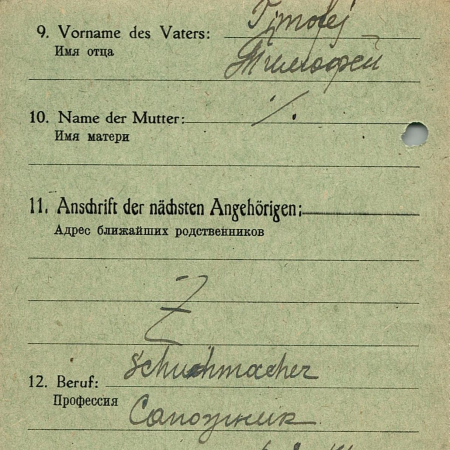 9. Vorname des Vaters: Timofej
Имя отца Тимофей
10. Name der Mutter: ⁒
Имя матери
11. Anschrift der nächsten Angehörigen:
Адрес ближайших родственников
Z
12. Beruf: Schuhmacher
Профессия Сапожник